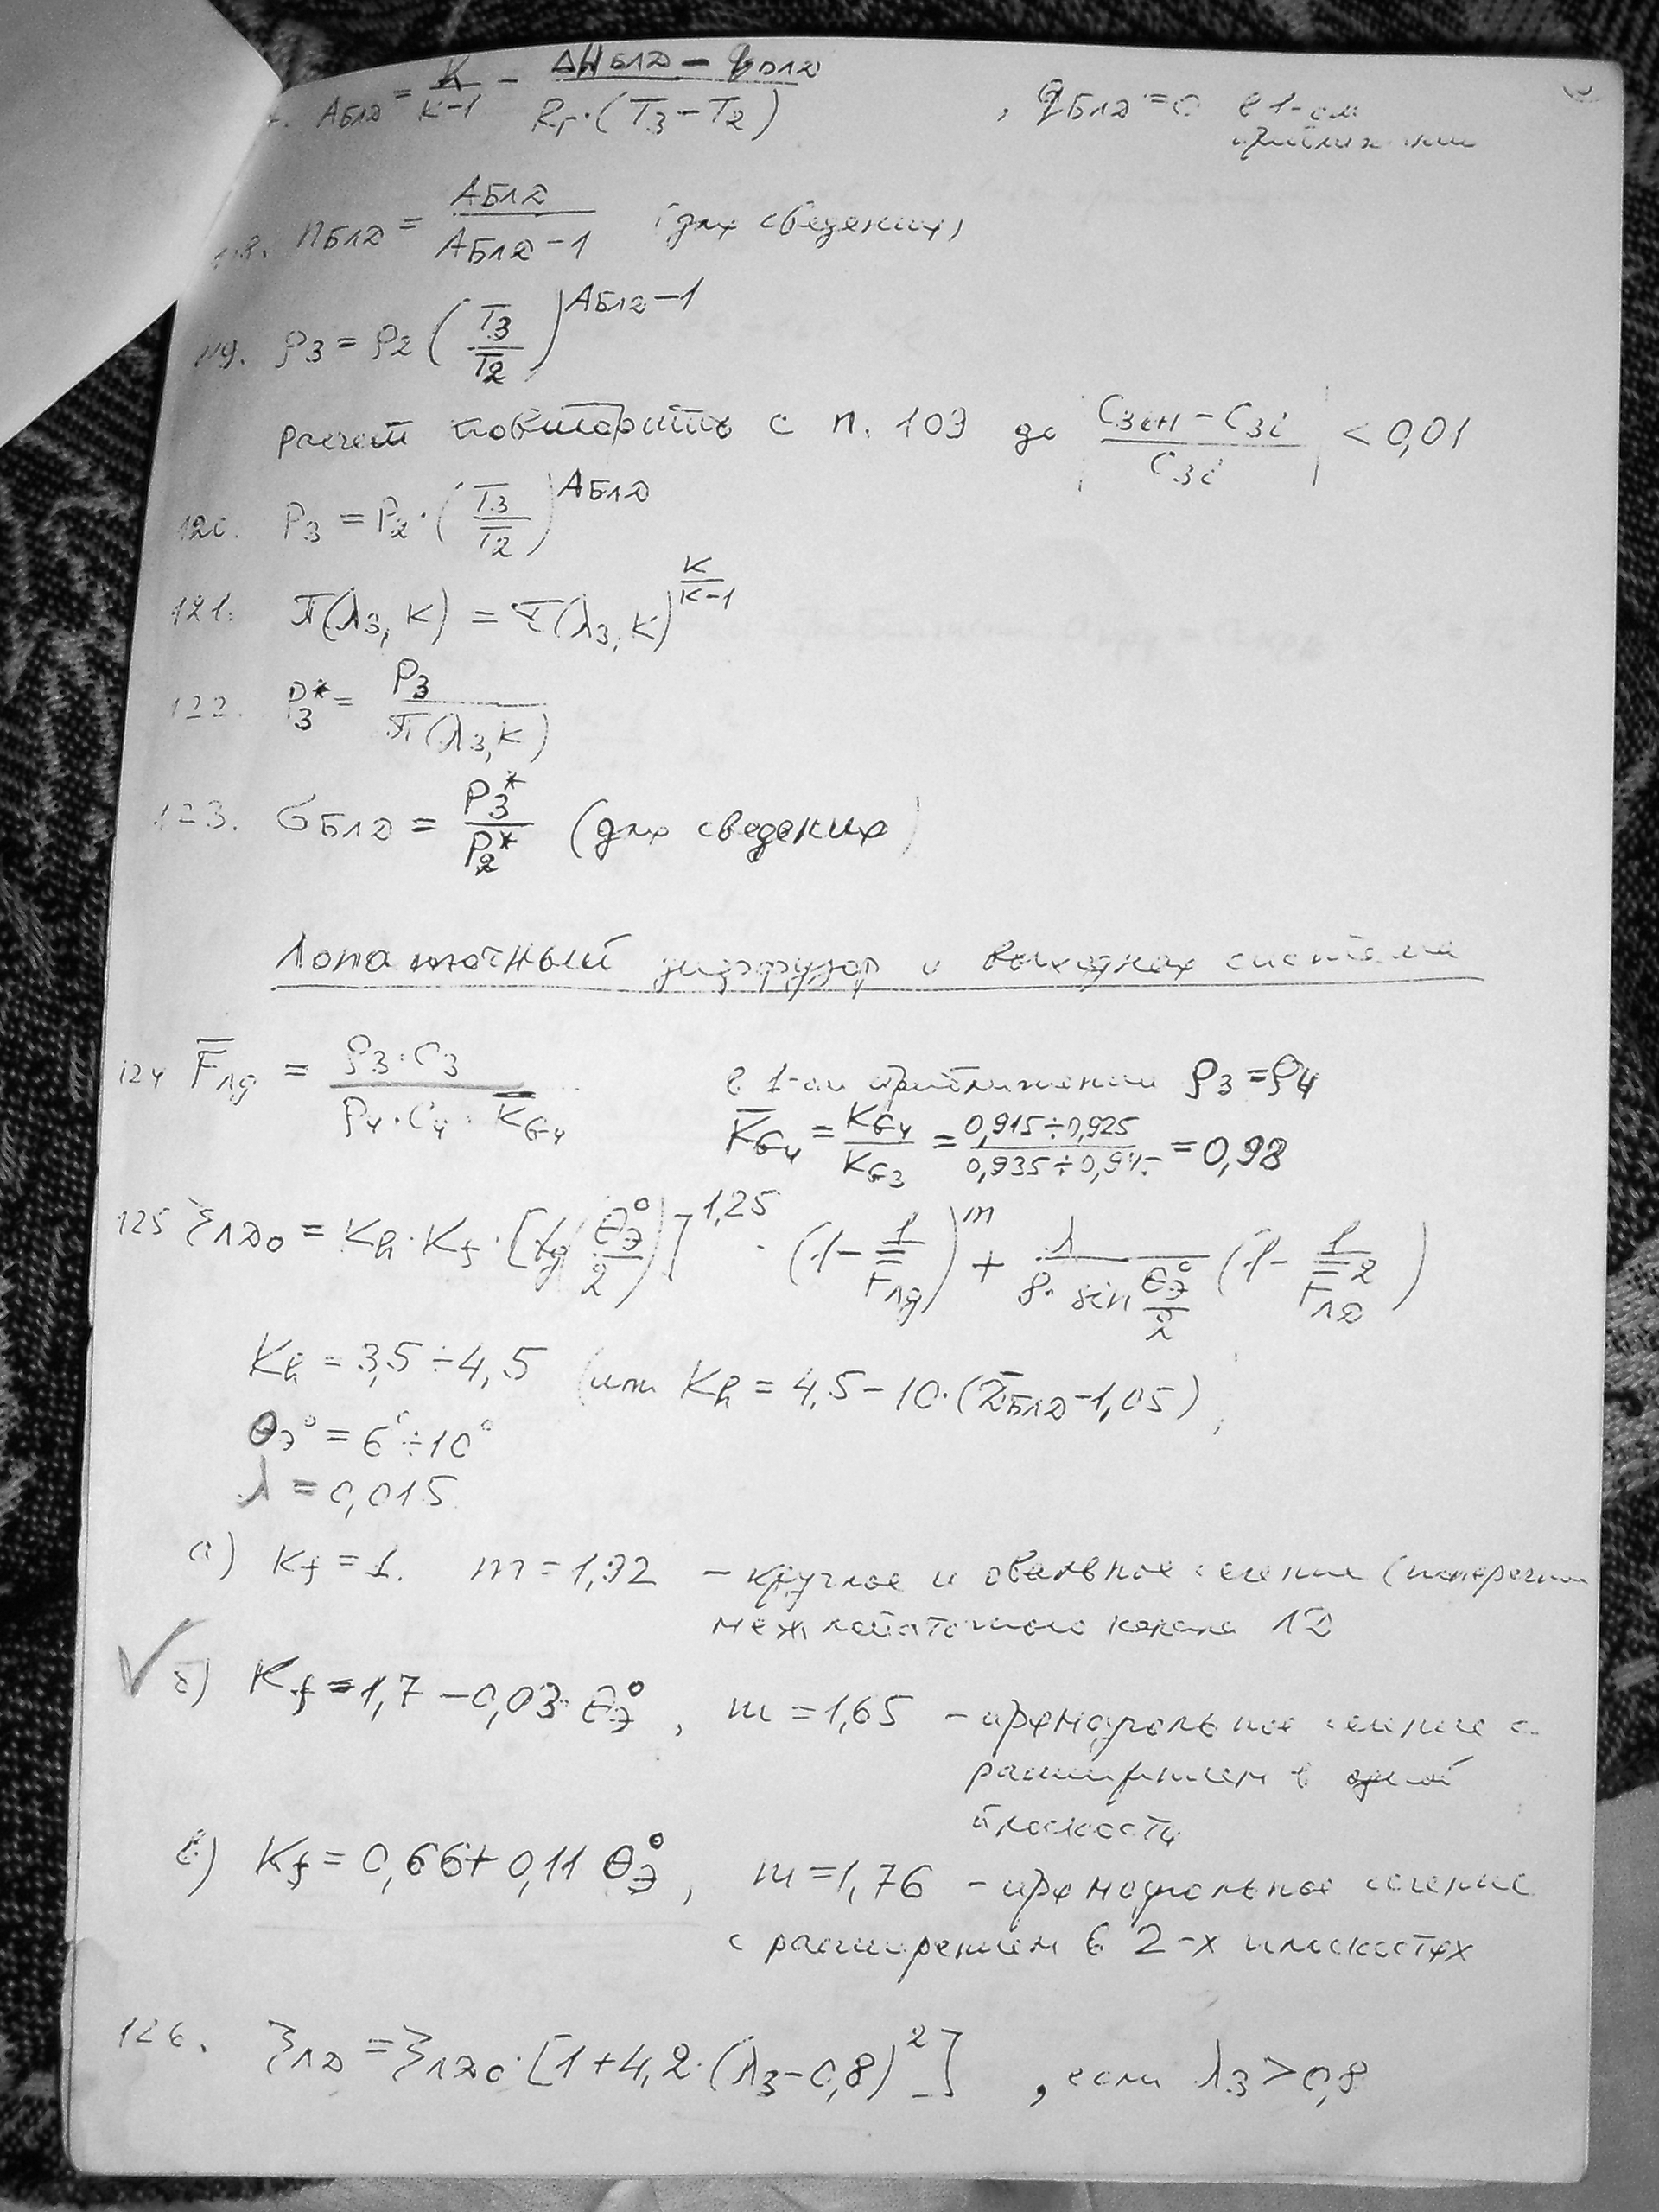 АБЛД = K/(K-1) - (ΔHБЛД - qБЛД)/(Rг·(T3-T2)) , qБЛД=0 в 1-ом
приближении
118. nБЛД = АБЛД/(АБЛД-1) (для сведения)
119. ρ3 = ρ2 (T3/T2)^(АБЛД-1)
расчет повторить с п. 103 до |(C3i+1 - C3i)/C3i| < 0,01
120. P3 = P2·(T3/T2)^АБЛД
121. π(λ3, K) = τ(λ3, K)^(K/(K-1))
122. P3* = P3/π(λ3,K)
123. σБЛД = P3*/P2* (для сведения)
Лопаточный диффузор и выходная система
124 F̅лд = (ρ3·C3)/(ρ4·C4·K̅G4) в 1-ом приближении ρ3=ρ4
K̅G4 = KG4/KG3 = (0,915÷0,925)/(0,935÷0,945) = 0,98
125 ξЛД0 = Kh·Kf·[tg(θэ°/2)]^1,25 · (1 - 1/F̅лд)^m + λ/(8·sin(θэ°/2)) (1 - 1/F̅²ЛД)
Kh = 3,5÷4,5 (или Kh = 4,5-10·(D̅БЛД-1,05),
θэ° = 6°÷10°
λ = 0,015
а) Kf = 1. m = 1,32 - круглое и овальное сечение (поперечное
межлопаточного канала ЛД
✓ б) Kf = 1,7-0,03·θэ°, m = 1,65 - прямоугольное сечение с
расширением в одной
плоскости
в) Kf = 0,66+0,11 θэ°, m = 1,76 - прямоугольное сечение
с расширением в 2-х плоскостях
126. ξЛД = ξЛД0·[1+4,2·(λ3-0,8)²] , если λ3 > 0,8